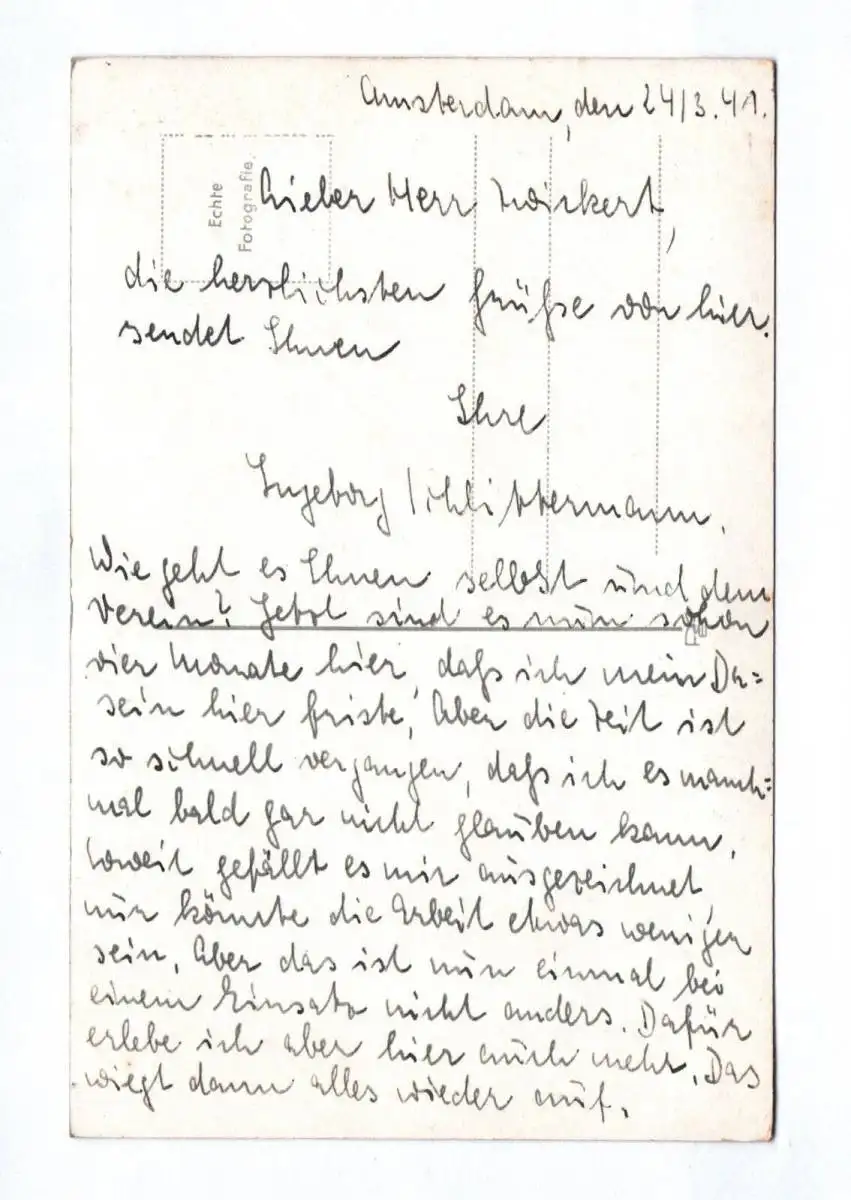 Amsterdam, den 24/3.41.
Echte
Fotografie.
Lieber Herr Zwickert,
die herzlichsten Grüße von hier
sendet Ihnen
Ihre
Ingeborg Schlittermann.
Wie geht es Ihnen selbst und dem
Verein? Jetzt sind es nun schon
vier Monate hier, daß ich mein Da=
sein hier friste, Aber die Zeit ist
so schnell vergangen, daß ich es manch=
mal bald gar nicht glauben kann.
Soweit gefällt es mir ausgezeichnet,
nur könnte die Arbeit etwas weniger
sein. Aber das ist nun einmal bei
einem Einsatz nicht anders. Dafür
erlebe ich aber hier auch mehr. Das
wiegt dann alles wieder auf.